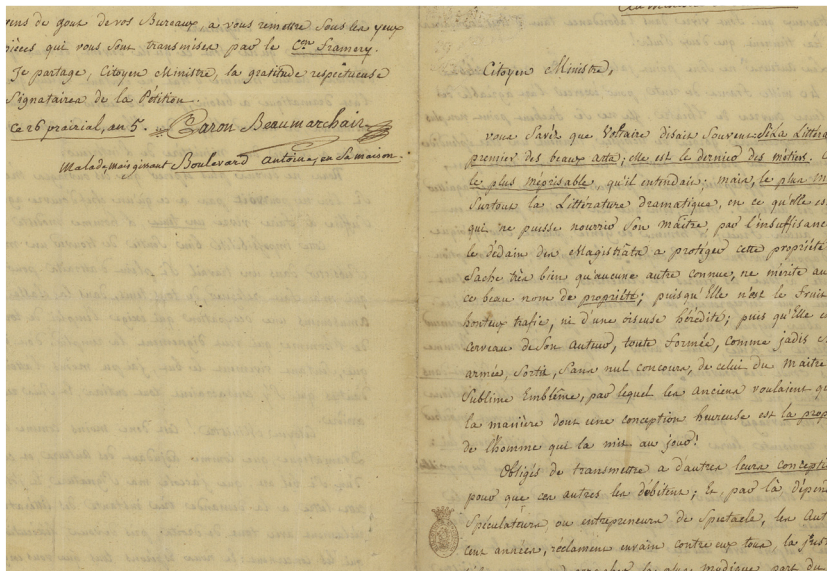 gens de gout de vos Bureaux, a vous remettre sous les yeux
pièces qui vous sont transmises par le Cen. Framery.
Je partage, Citoyen Ministre, la gratitude respectueuse
Signataires de la Pétition.
Ce 26 prairial, an 5. Caron Beaumarchais
Malade, mais gissant Boulevard Antoine, en sa maison.
Citoyen Ministre,
vous savés que Voltaire disait souvent: Si la Littéra
premier des beaux arts; elle est le dernier des métiers.
le plus méprisable, qu'il entendait; mais, le plus
Surtout la Littérature dramatique, en ce qu'elle es
qui ne puisse nourrir son Maître, par l'insuffisanc
le dédain des Magistrats a protéger cette propriété
Sache très bien qu'aucune autre connue, ne mérite au
ce beau nom de propriété; puisqu'Elle n'est le fruit
honteux trafic, ni d'une oiseuse hérédité; puis qu'Elle
cerveau de son auteur, toute formée, comme jadis
armée, sortit, sans nul concours, de celui du Maître
Sublime Emblême, par lequel les anciens voulaient
la manière dont une conception heureuse est la prop
de l'homme qui la mit au jour!
Obligés de transmettre a d'autres leurs concepti
pour que ces autres les débitent; et par là dépen
Spéculateurs ou entrepreneurs de Spectacle, les Aut
cent années, réclament envain contre eux tous, la just
la plus modique part du